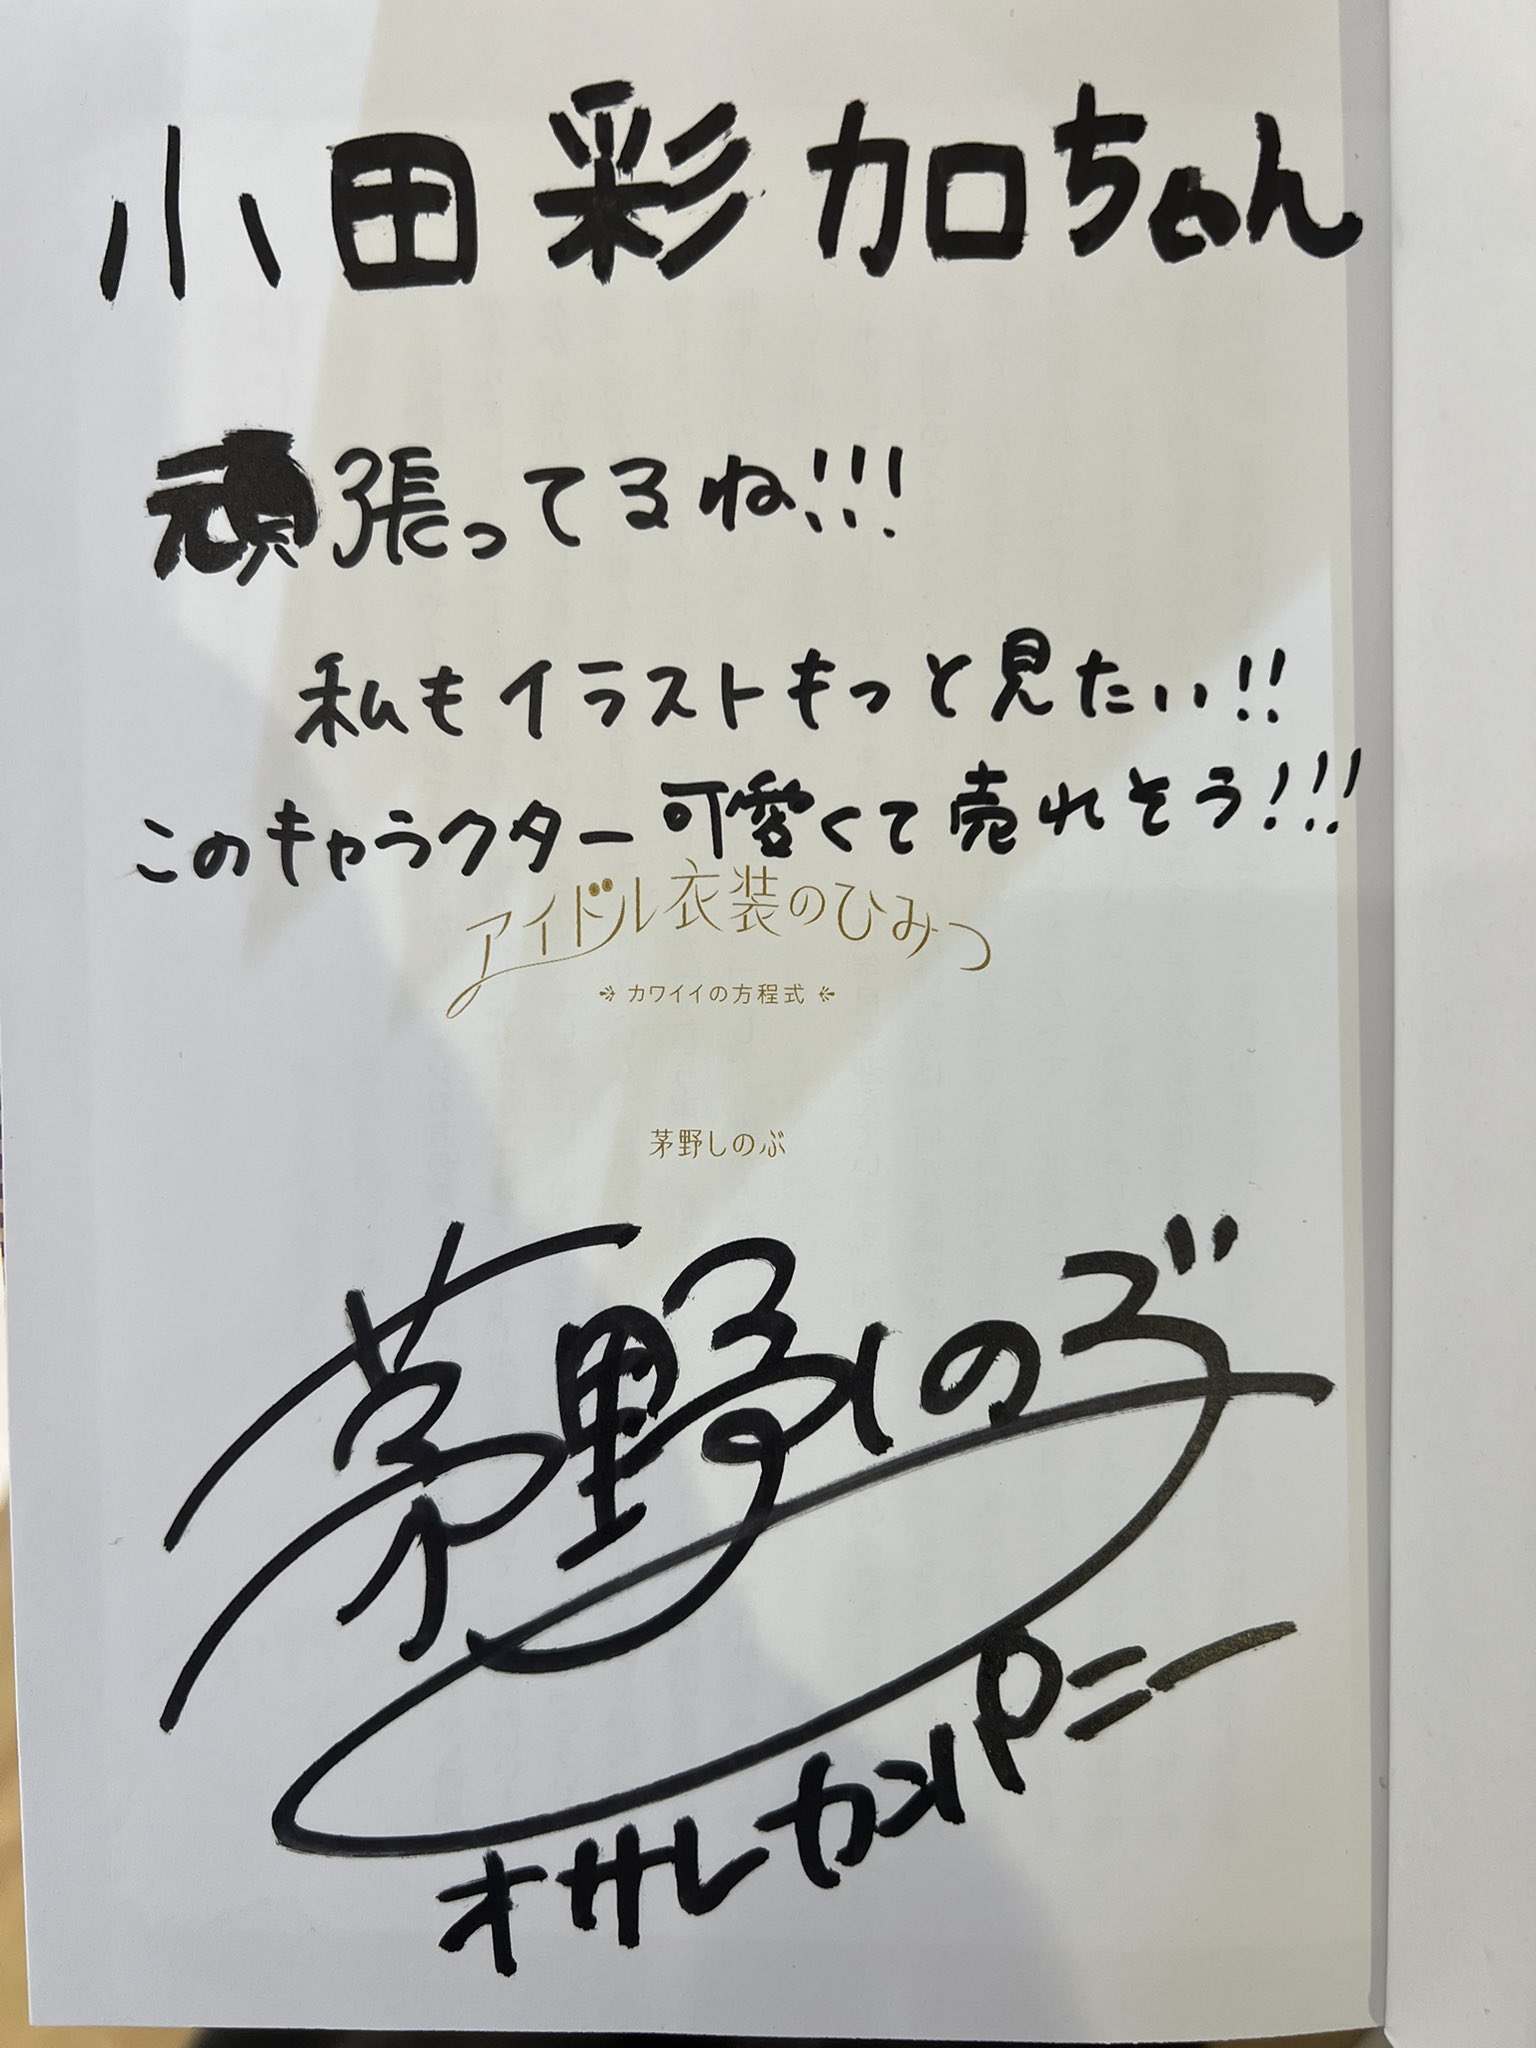 小田彩加ちゃん
頑張ってるね!!!
私もイラストもっと見たい!!
このキャラクター可愛くて売れそう!!!
アイドル衣装のひみつ
カワイイの方程式
茅野しのぶ
茅野しのぶ
オサレカンパニー